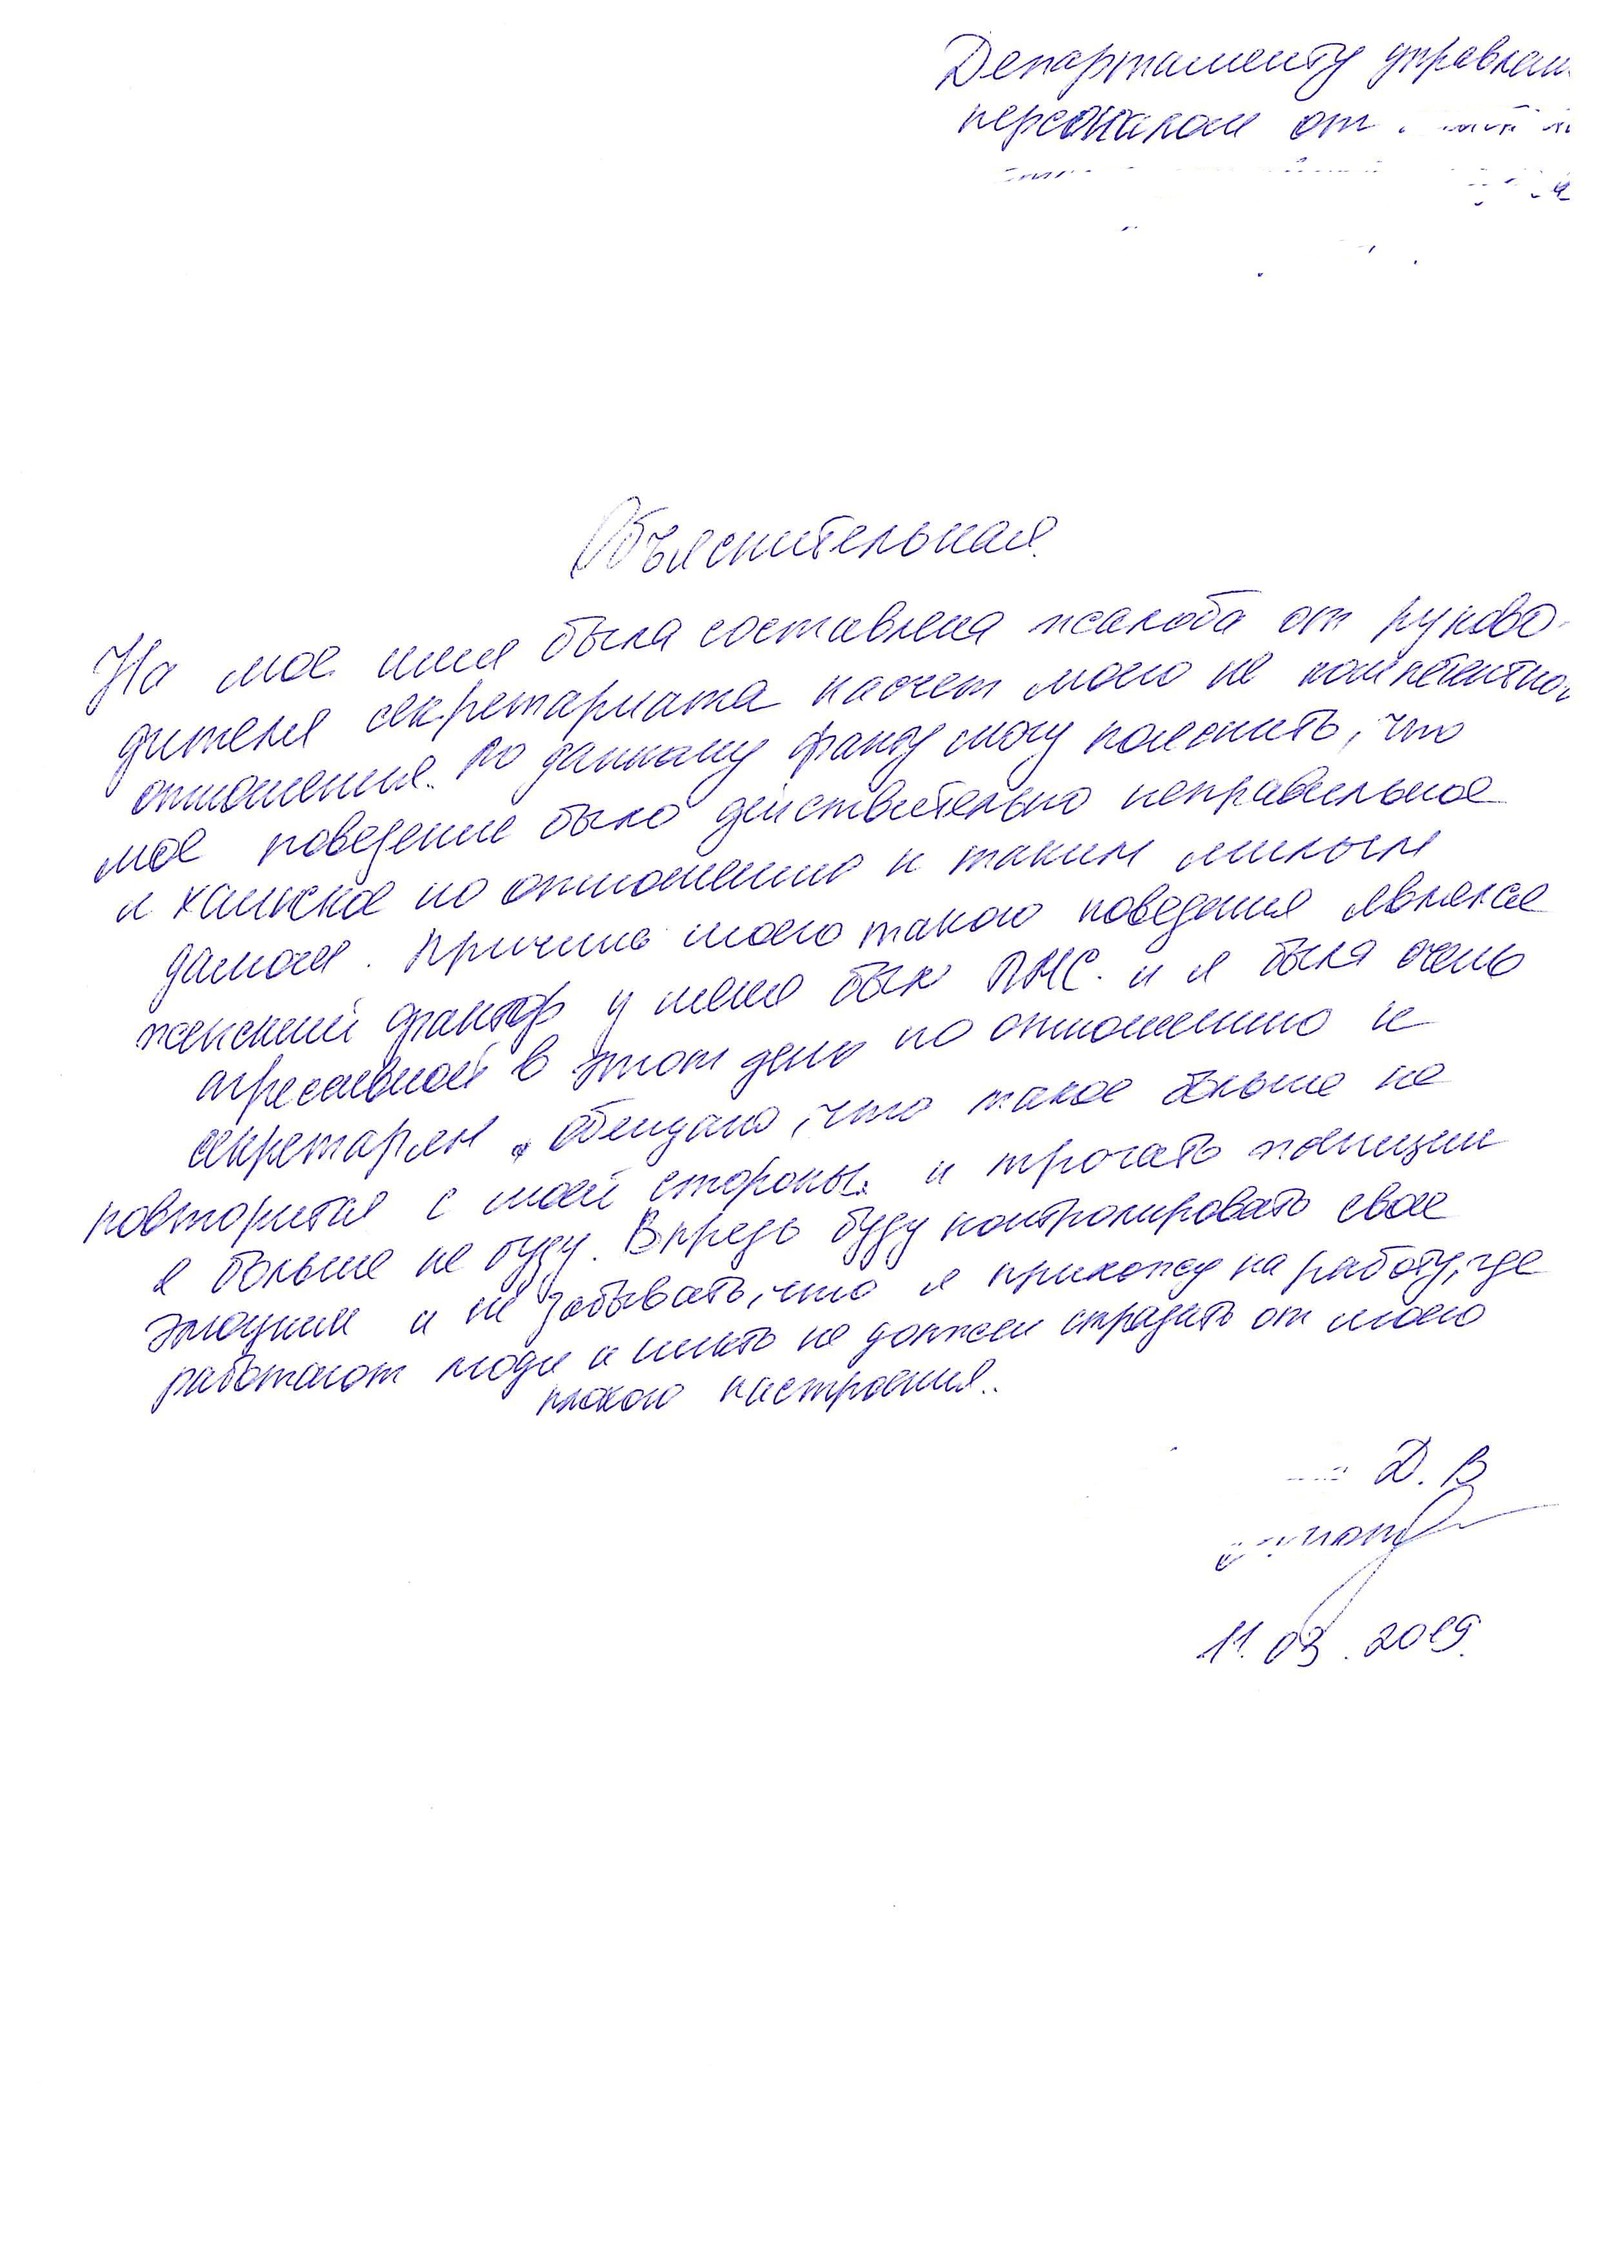 Департаменту управлен
персоналом от
Объяснительная.
На мое имя была составлена жалоба от руково-
дителя секретариата насчет моего не компетентно
отношения. По данному факту могу пояснить, что
мое поведение было действительно неправильное
и хамское по отношению к таким милым
дамам. Причина моего такого поведения являлся
женский фактор у меня был ПМС. и я была очень
агрессивной в этот день по отношению к
секретарям. Обещаю, что такое больше не
повторится с моей стороны. и трогать женщин
я больше не буду. Впредь буду контролировать свое
эмоции и не забывать, что я прихожу на работу, где
работают люди и никто не должен страдать от моего
плохого настроения..
Д. В
11.03.2019.